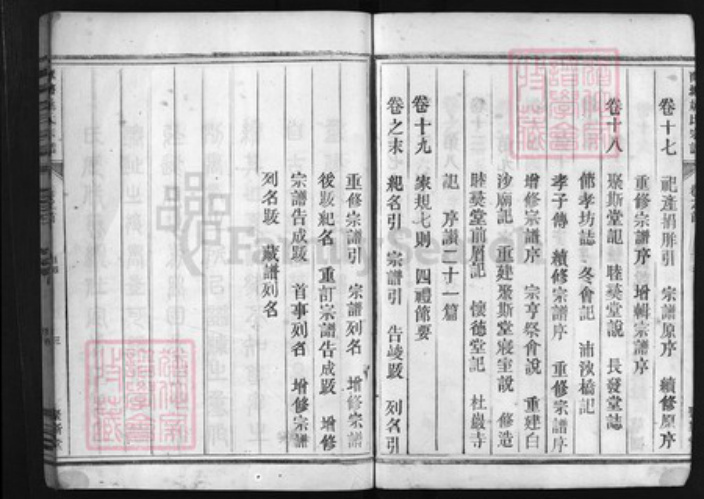 卷十七 祀產捐胙引 宗譜原序 續修原序
重修宗譜序 增輯宗譜序
卷十八 聚斯堂記 睦葵堂說 長發堂誌
佛孝坊誌 冬會記 浦浹橋記
孝子傳 續修宗譜序 重修宗譜序
增修宗譜序 宗亨祭會說 重建白
沙廟記 重建聚斯堂寢室說 修造
睦葵堂前眉記 懷德堂記 杜巖寺
記 序讚二十一篇
卷十九 家規七則 四禮節要
卷之末 紀名引 宗譜引 告竣跋 列名引
重修宗譜引 宗譜列名 增修宗譜
後跋紀名 重訂宗譜告成跋 增修
宗譜告成跋 首事列名 增修宗譜
列名跋 藏譜列名
FamilySearch